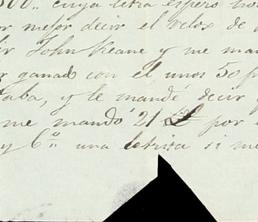 500.. cuya letra espero
mejor decir el
John Keane y me
ganado con el unos 50
aba, y te mandé decir
me mandó 21 £ por
y C.ª una letrita si me